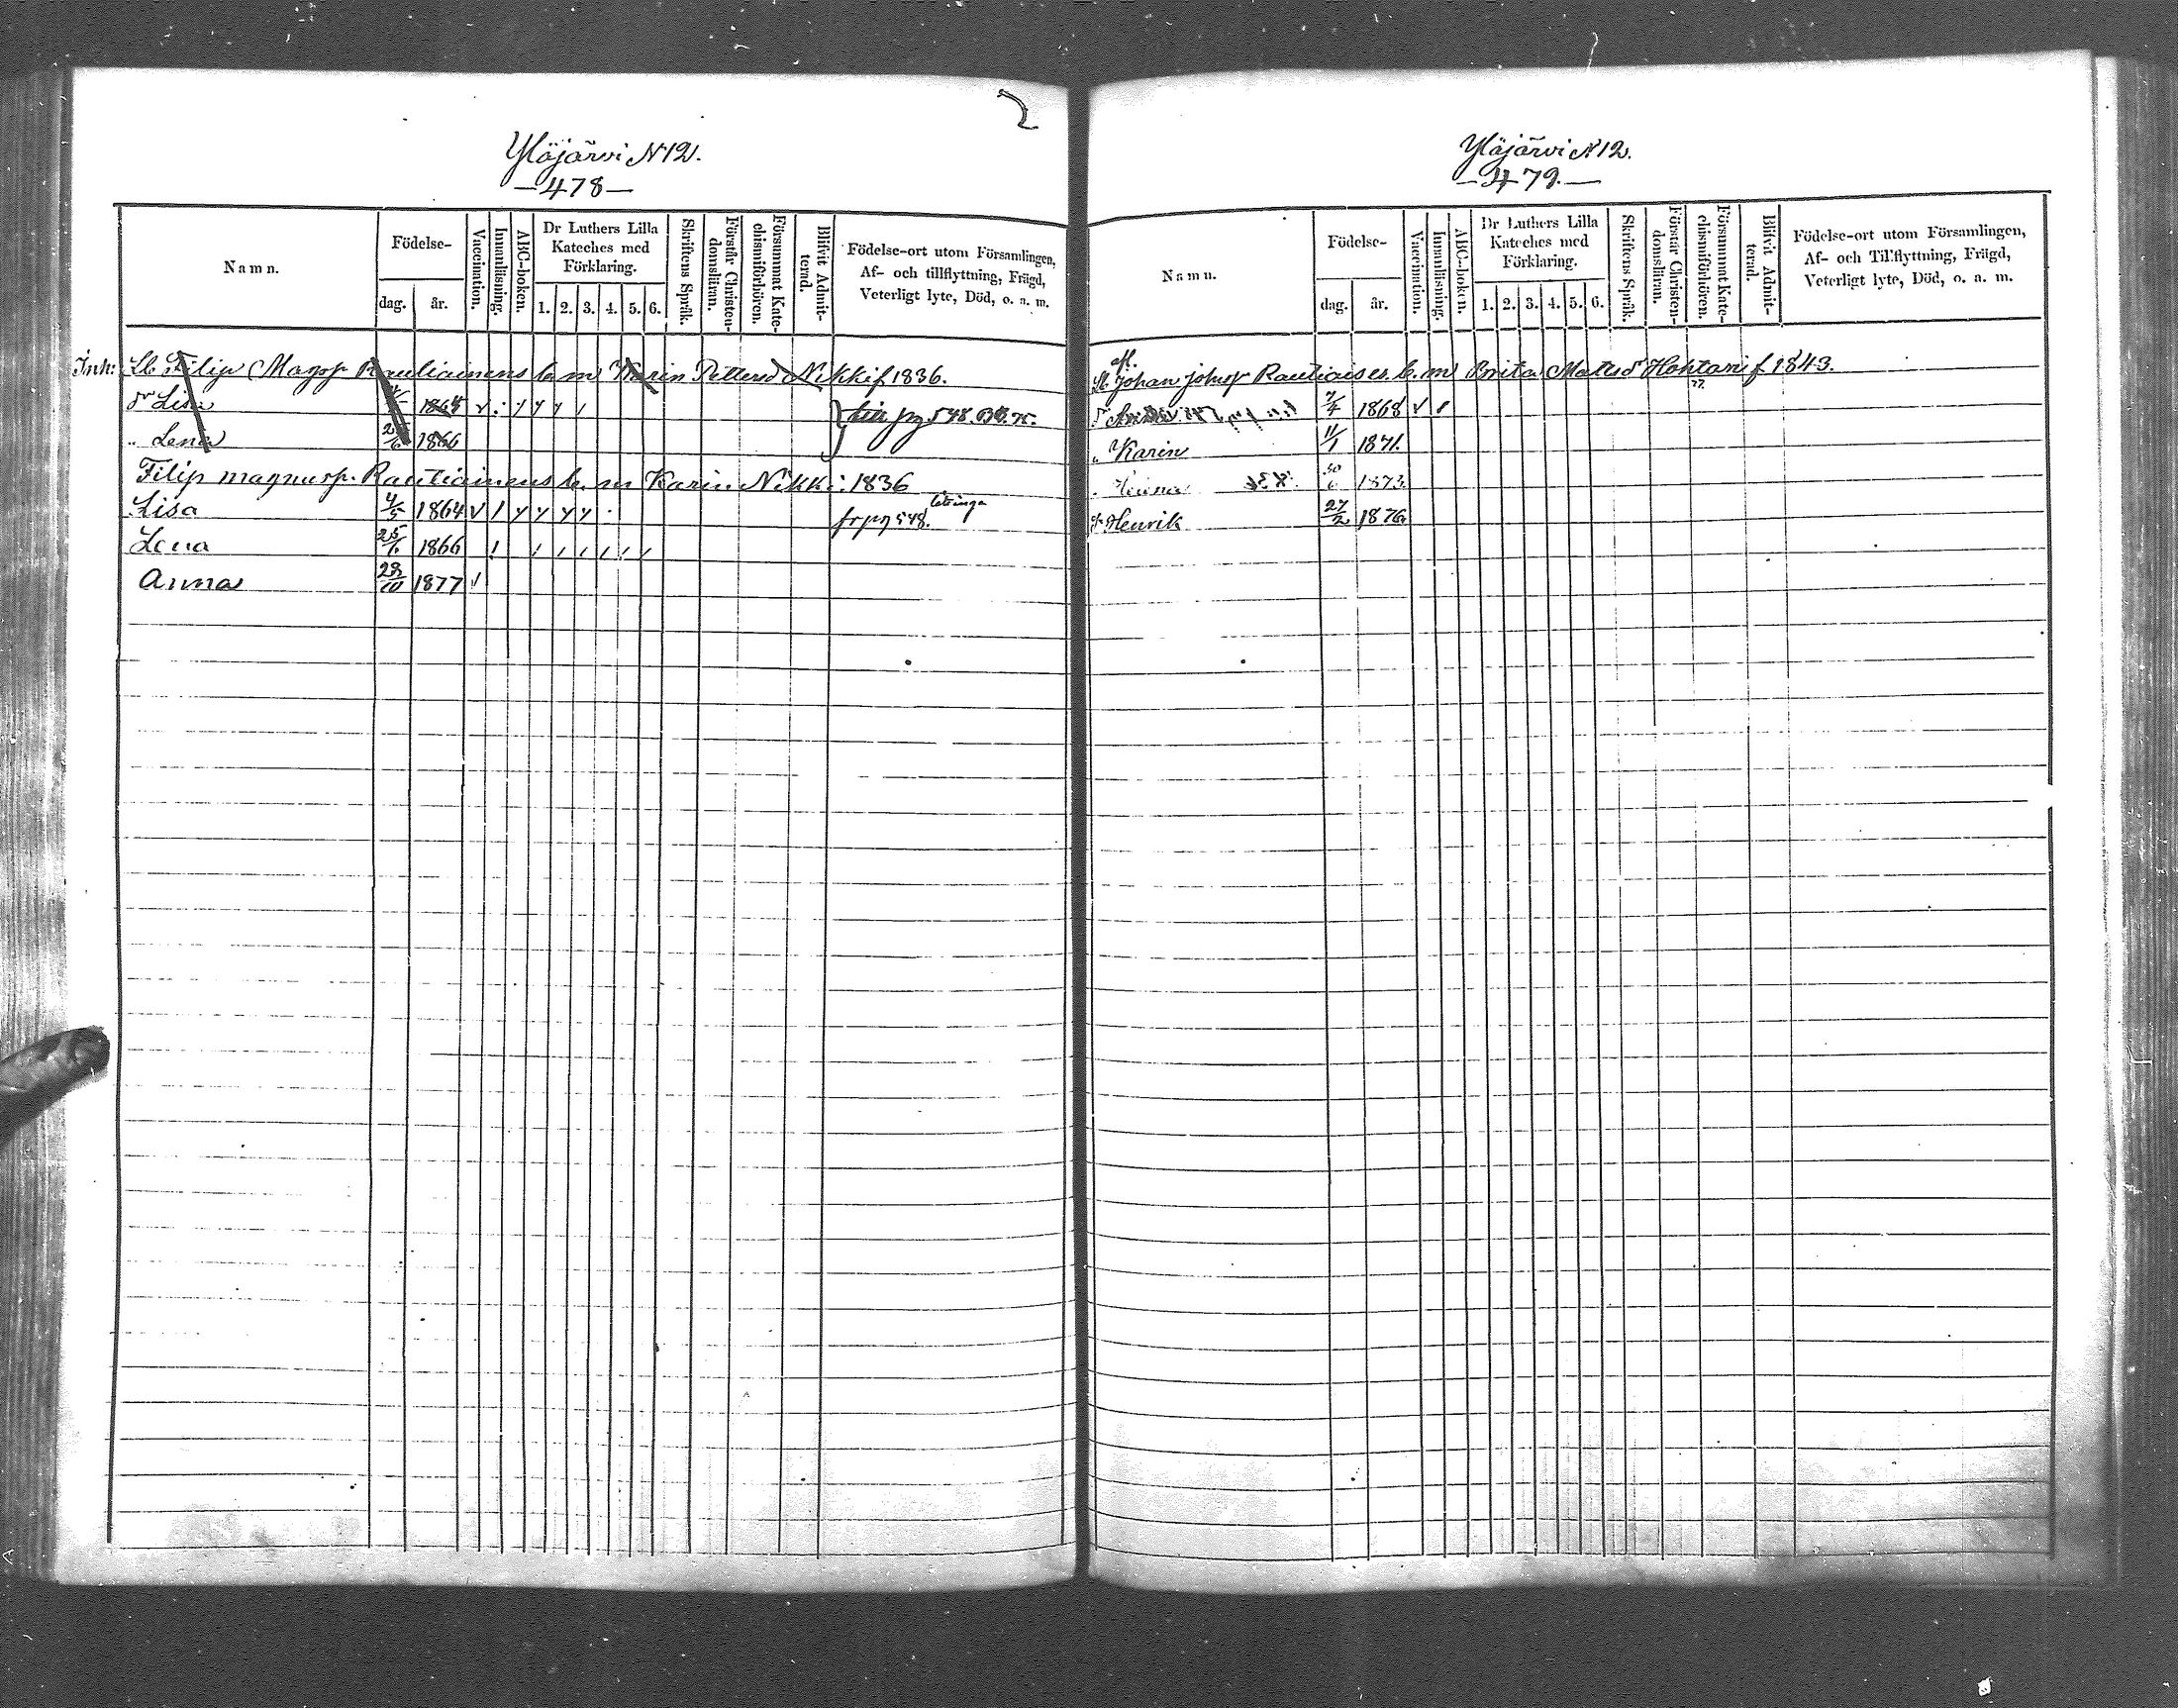 2
Ylöjärvi N 12.
— 478 —
Namn.
Födelse-
dag.
år.
Vaccination.
Innanläsning.
ABC-boken.
Dr Luthers Lilla
Kateches med
Förklaring.
1. 2. 3. 4. 5. 6.
Skriftens Språk.
Förstår Christen-
domsläran.
Försummat Kate-
chismiförhören.
Blifvit Admit-
terad.
Födelse-ort utom Församlingen,
Af- och tillflyttning, Frägd,
Veterligt lyte, Död, o. a. m.
Inh: Filip Magnsp Rautiainens b. m Karin Pettersd Nikki f 1836.
Lisa 1864
" Lena 25/6 1866
Filip magnusp. Rautiainens b. m Karin Nikki: 1836
Lisa 4/5 1864 fr pg 548.
Lena 25/6 1866
Anna 28/10 1877
Ylöjärvi N 12.
— 479. —
Namn.
Födelse-
dag.
år.
Vaccination.
Innanläsning.
ABC-boken.
Dr Luthers Lilla
Kateches med
Förklaring.
1. 2. 3. 4. 5. 6.
Skriftens Språk.
Förstår Christen-
domsläran.
Försummat Kate-
chismiförhören.
Blifvit Admit-
terad.
Födelse-ort utom Församlingen,
Af- och Tillflyttning, Frägd,
Veterligt lyte, Död, o. a. m.
Johan Johsp Rautiaisen b. m Brita Mattsd Hohtari f 1843.
7/4 1868
" Karin 11/1 1871.
30/6 1873
Henrik 27/2 1876